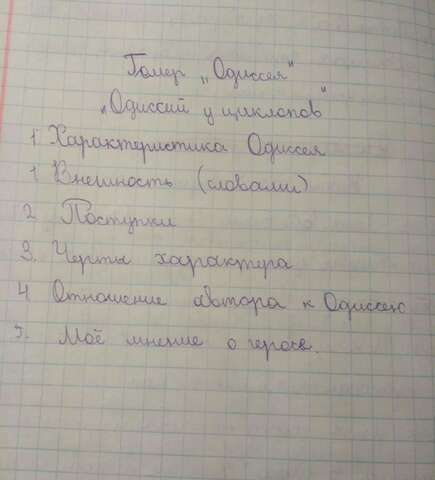 Гомер „Одиссея"
„Одиссей у циклопов"
1 Характеристика Одиссея
1 Внешность (словами)
2 Поступки
3. Черты характера
4 Отношение автора к Одиссею
5. Моё мнение о герое.